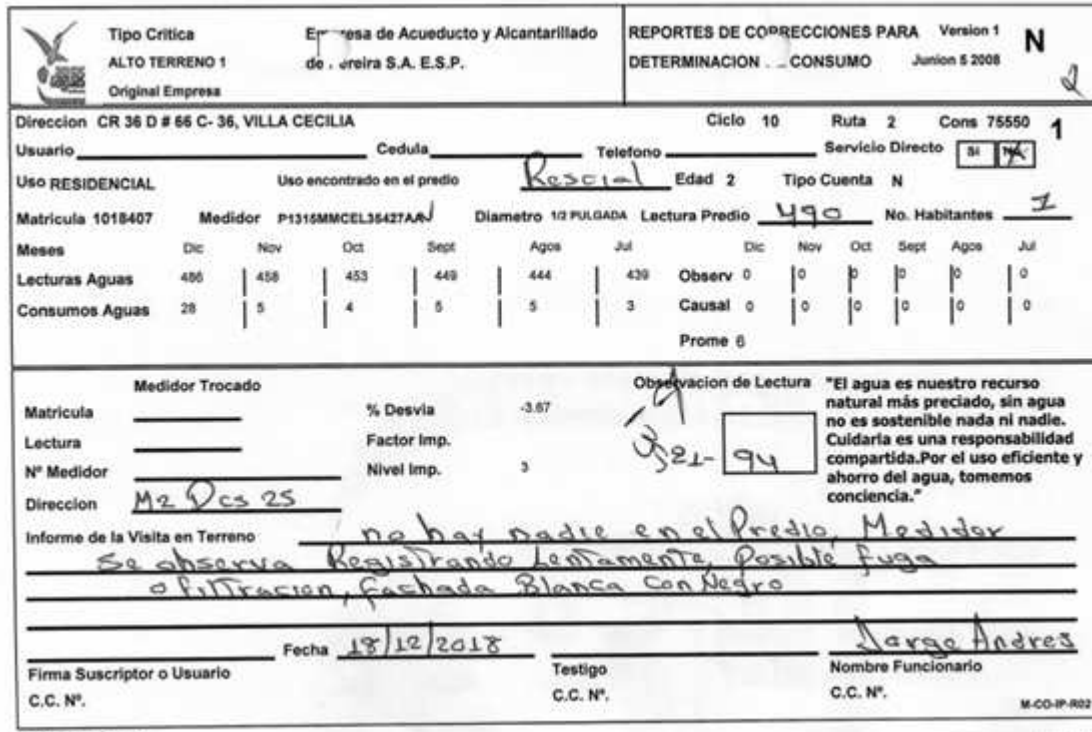 Tipo Critica
ALTO TERRENO 1
Original Empresa
Empresa de Acueducto y Alcantarillado
de Pereira S.A. E.S.P.
REPORTES DE CORRECCIONES PARA Version 1 N
DETERMINACION CONSUMO Junion 5 2008
Direccion CR 36 D # 66 C- 36, VILLA CECILIA Ciclo 10 Ruta 2 Cons 75550 1
Usuario Cedula Telefono Servicio Directo SI NO
Uso RESIDENCIAL Uso encontrado en el predio Rescial Edad 2 Tipo Cuenta N
Matricula 1018407 Medidor P1315MMCEL35427AA Diametro 1/2 PULGADA Lectura Predio 490 No. Habitantes 1
Meses Dic Nov Oct Sept Agos Jul Dic Nov Oct Sept Agos Jul
Lecturas Aguas 486 458 453 449 444 439 Observ 0 0 0 0 0 0
Consumos Aguas 28 5 4 5 5 3 Causal 0 0 0 0 0 0
Prome 6
Medidor Trocado
Matricula
Lectura
Nº Medidor
Direccion Mz D cs 25
% Desvia -3.67
Factor Imp.
Nivel Imp. 3
Observacion de Lectura
94
"El agua es nuestro recurso
natural más preciado, sin agua
no es sostenible nada ni nadie.
Cuidarla es una responsabilidad
compartida.Por el uso eficiente y
ahorro del agua, tomemos
conciencia."
Informe de la Visita en Terreno no hay nadie en el Predio, Medidor
Se observa Registrando Lentamente, Posible fuga
o filtracion, fachada Blanca Con Negro
Fecha 18/12/2018 Jorge Andres
Firma Suscriptor o Usuario Testigo Nombre Funcionario
C.C. Nº. C.C. Nº.
M-CO-IP-R02